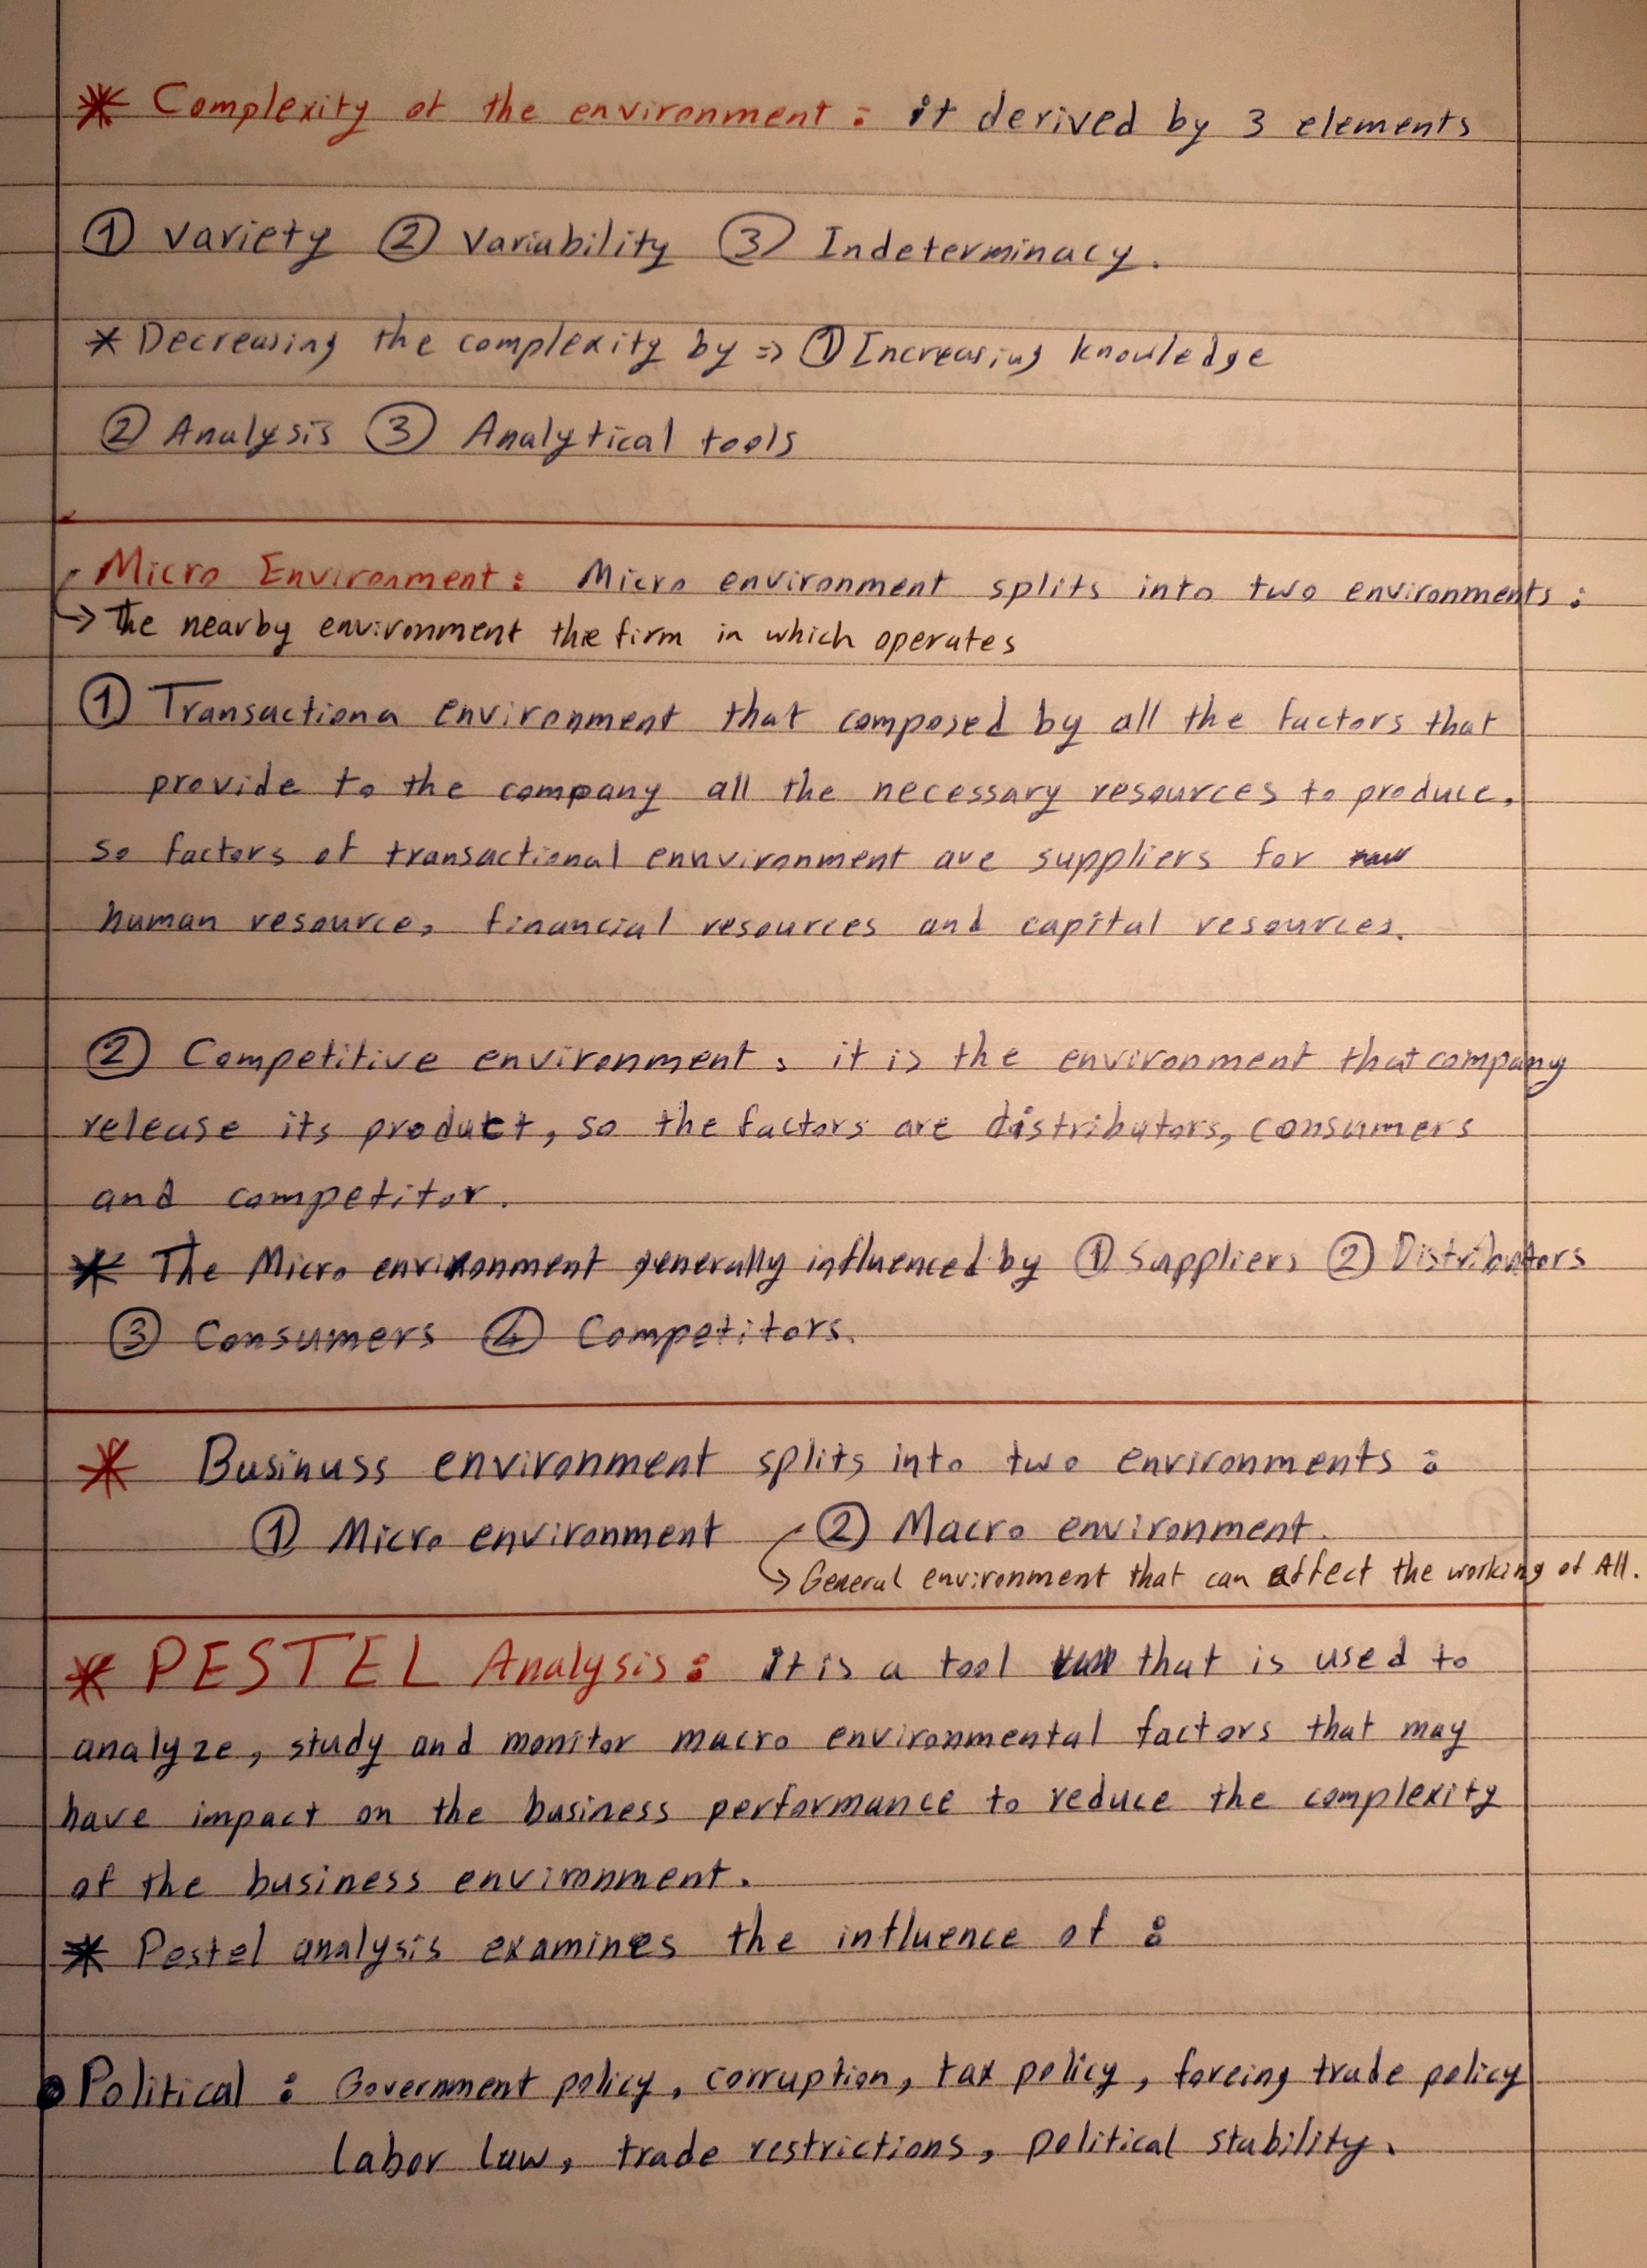 * Complexity of the environment : it derived by 3 elements
① Variety ② Variability ③ Indeterminacy.
* Decreasing the complexity by => ① Increasing knowledge
② Analysis ③ Analytical tools
Micro Environment : Micro environment splits into two environments :
→ The nearby environment the firm in which operates
① Transactiona environment that composed by all the factors that
provide to the company all the necessary resources to produce,
so factors of transactional ennvironment are suppliers for
human resource, financial resources and capital resources.
② Competitive environment, it is the environment that company
release its product, so the factors are distributors, consumers
and competitor.
* The Micro environment generally influenced by ① Suppliers ② Distributors
③ Consumers ④ Competitors.
* Businuss environment splits into two environments :
① Micro environment ② Macro environment.
→ General environment that can affect the working of All.
* PESTEL Analysis : it is a tool that is used to
analyze, study and monitor macro environmental factors that may
have impact on the business performance to reduce the complexity
of the business environment.
* Pestel analysis examines the influence of :
● Political : Government policy, corruption, tax policy, foreing trade policy
labor law, trade restrictions, political stability.